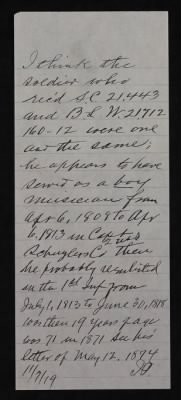 I think the
soldier who
rec'd S.C. 21.443
and B.L.W. 21712
160-12 were one
and the same;
he appears to have
served as a boy
musician from
Apr 6, 1808 to Apr
6, 1813 in Capt
Co then
he probably reenlisted
in the 1st Inf from
July 1, 1813 to June 30, 1818
was then 19 years of age
was 71 in 1871 See his
letter of May 12, 1874
11/7/19